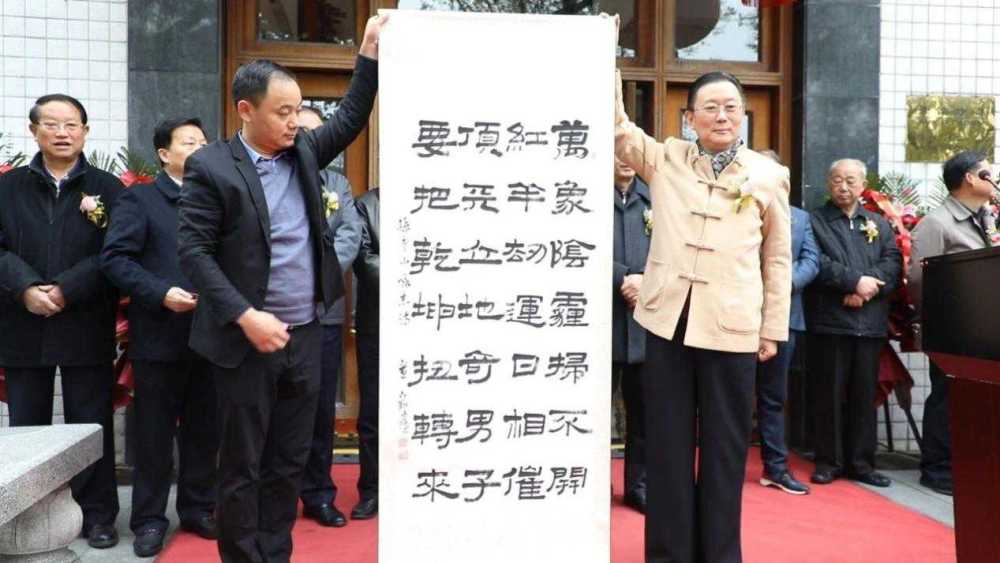 萬象陰霾掃不開
紅羊劫運日相催
頂天立地奇男子
要把乾坤扭轉來